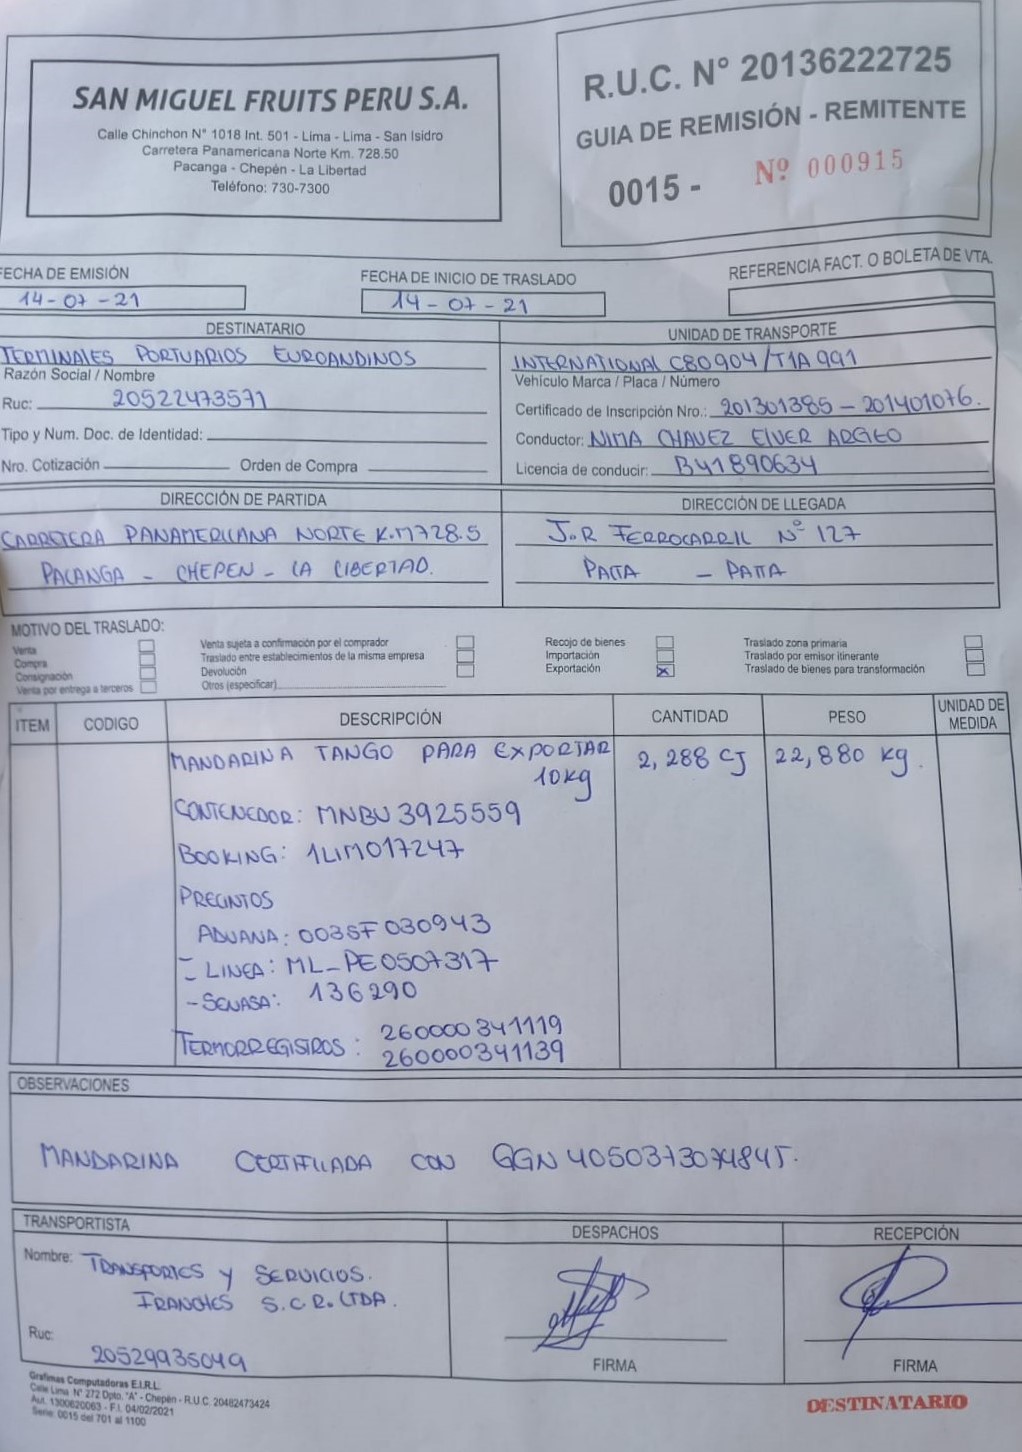 SAN MIGUEL FRUITS PERU S.A.
Calle Chinchon N° 1018 Int. 501 - Lima - Lima - San Isidro
Carretera Panamericana Norte Km. 728.50
Pacanga - Chepén - La Libertad
Teléfono: 730-7300
R.U.C. N° 20136222725
GUIA DE REMISIÓN - REMITENTE
0015 - Nº 000915
FECHA DE EMISIÓN
14-07-21
FECHA DE INICIO DE TRASLADO
14-07-21
REFERENCIA FACT. O BOLETA DE VTA.
DESTINATARIO
TERMINALES PORTUARIOS EUROANDINOS
Razón Social / Nombre
Ruc: 20522473571
Tipo y Num. Doc. de Identidad:
Nro. Cotización Orden de Compra
UNIDAD DE TRANSPORTE
INTERNATIONAL C80904/T1A991
Vehículo Marca / Placa / Número
Certificado de Inscripción Nro.: 201301385 - 201401076.
Conductor: NIMA CHAVEZ ELVER ARGEO
Licencia de conducir: B41890634
DIRECCIÓN DE PARTIDA
CARRETERA PANAMERICANA NORTE K.M728.5
PACANGA - CHEPEN - LA LIBERTAD.
DIRECCIÓN DE LLEGADA
J.R FERROCARRIL Nº 127
PAITA - PAITA
MOTIVO DEL TRASLADO:
Venta
Compra
Consignación
Venta por entrega a terceros
Venta sujeta a confirmación por el comprador
Traslado entre establecimientos de la misma empresa
Devolución
Otros (especificar)
Recojo de bienes
Importación
Exportación X
Traslado zona primaria
Traslado por emisor itinerante
Traslado de bienes para transformación
ITEM CODIGO DESCRIPCIÓN CANTIDAD PESO UNIDAD DE MEDIDA
MANDARINA TANGO PARA EXPORTAR 2,288 CJ 22,880 kg.
10kg
CONTENEDOR: MNBU 3925559
BOOKING: 1LIM017247
PRECINTOS
ADUANA: 003SF030943
- LINEA: ML-PE0507317
- SENASA: 136290
TERMORREGISTROS: 260000341119
260000341139
OBSERVACIONES
MANDARINA CERTIFICADA CON GGN 4050373074845.
TRANSPORTISTA
Nombre: TRANSPORTES Y SERVICIOS.
S.C.R.LTDA.
Ruc:
20529935049
DESPACHOS
FIRMA
RECEPCIÓN
FIRMA
Grafimas Computadoras E.I.R.L.
Calle Lima N° 272 Dpto. "A" - Chepén - R.U.C. 20482473424
Aut. 1300620063 - F.I. 04/02/2021
Serie: 0015 del 701 al 1100
DESTINATARIO